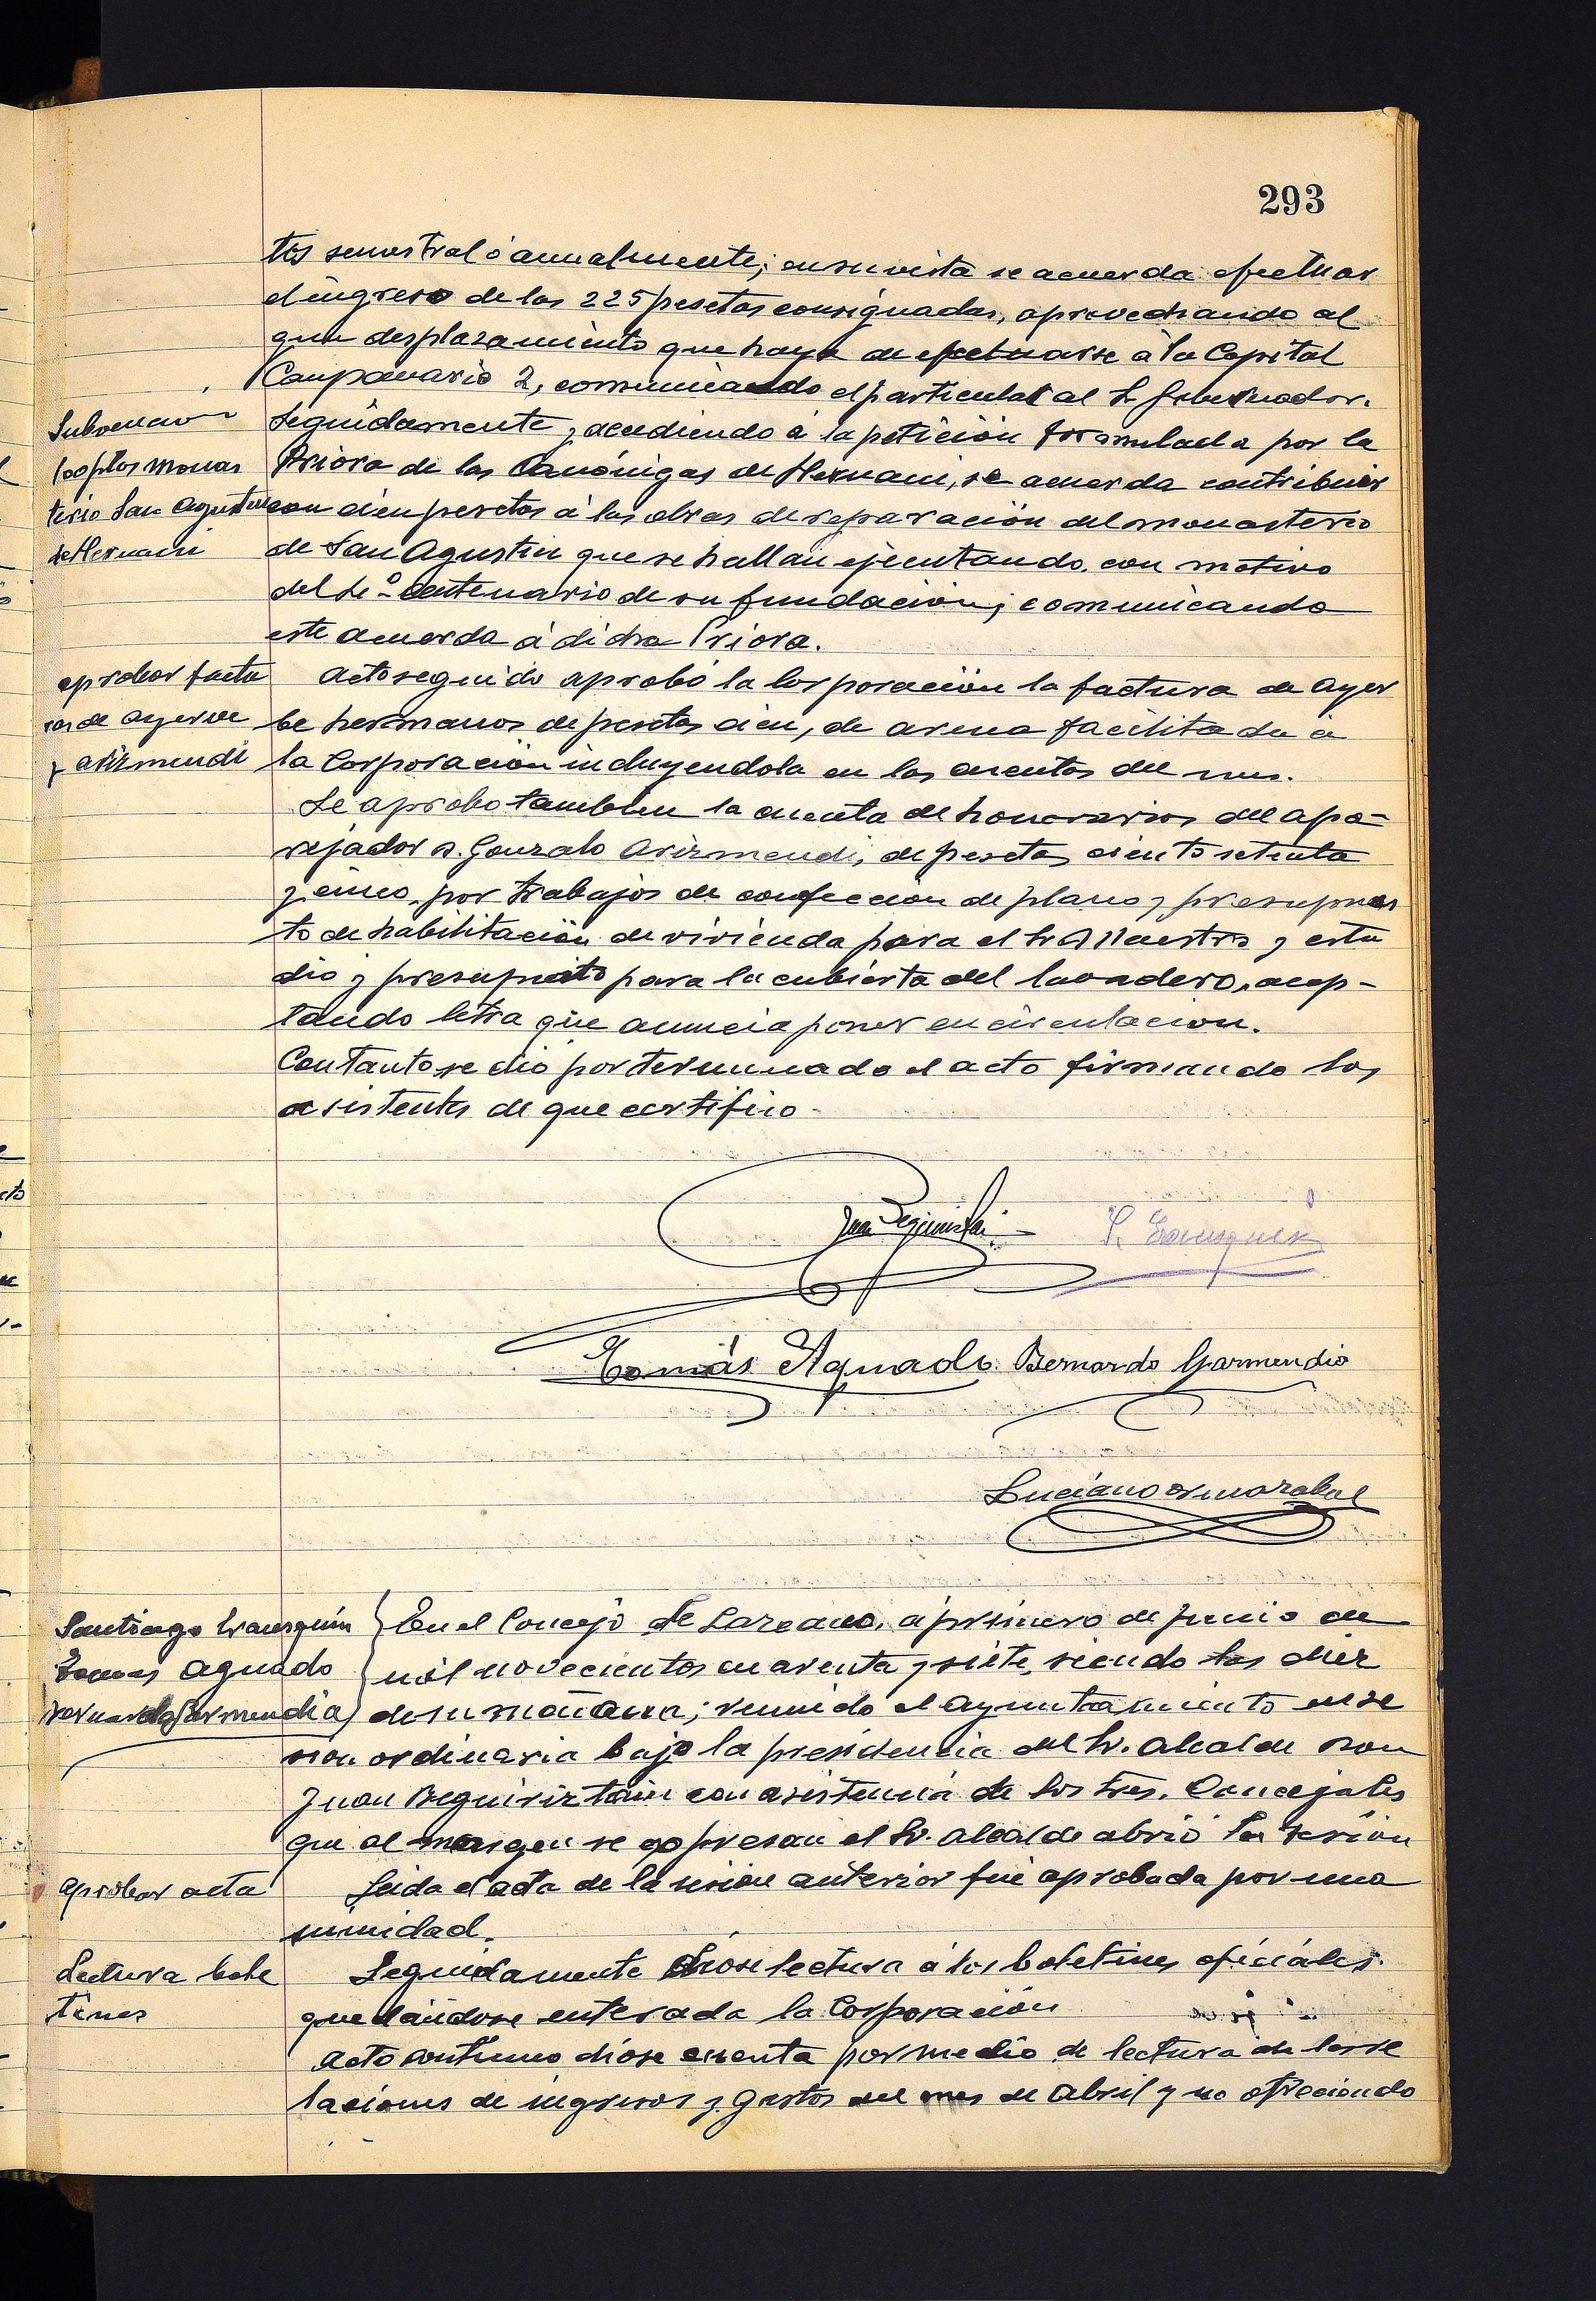 293
tos semestral ó anualmente; en su vista se acuerda efectuar
el ingreso de las 225 pesetas consignadas, aprovechando al
gun desplazamiento que haya de efectuarse á la Capital
Campanario 2, comunicando el particular al Sr Gobernador.
Subvencion
100 ptas monas
terio San Agustin
de Hernani
Seguidamente y accediendo á la petición formulada por la
Priora de las Canónigas de Hernani, se acuerda contribuir
con cien pesetas á las obras de reparación del monasterio
de San Agustin que se hallan ejecutando, con motivo
del centenario de su fundación; comunicando
este acuerdo á dicha Priora.
aprobar factu
ras de ayerve
y arizmendi
Acto seguido aprobó la Corporación la factura de Ayer
be hermanos de pesetas cien, de arena facilitada á
la Corporación incluyendola en las cuentas del mes.
Se aprobo tambien la cuenta de honorarios del apa-
rejador D. Gonzalo Arizmendi, de pesetas ciento setenta
y cinco, por trabajos de confeccion de plano y presupues
to de habilitación de vivienda para el Sr Maestro y estu
dio y presupuesto para la cubierta del lavadero, acep-
tando letra que anuncia poner en circulacion.
Con tanto se dió por terminado el acto firmando los
asistentes de que certifico.
Juan Beguiristai
S. Irausquin
Tomás Aguado Bernardo Garmendia
Luciano Ormazabal
Santiago Irausquin
Tomas Aguado
Bernardo Garmendia
En el Concejo de Lazcano, á primero de Junio de
mil novecientos cuarenta y siete, siendo las diez
de su mañana; reunido el ayuntamiento en se
sion ordinaria bajo la presidencia del Sr. Alcalde Don
Juan Beguiriztain con asistencia de los Sres. Concejales
que al margen se expresan el Sr. Alcalde abrió la sesión
aprobar acta
Leida el acta de la sesión anterior fué aprobada por una
nimidad.
Lectura bole
tines
Seguidamente dióse lectura á los boletines oficiales.
quedándose enterada la Corporación
Acto continuo dióse cuenta por medio de lectura de las re
laciones de ingresos y gastos del mes de Abril y no ofreciendo